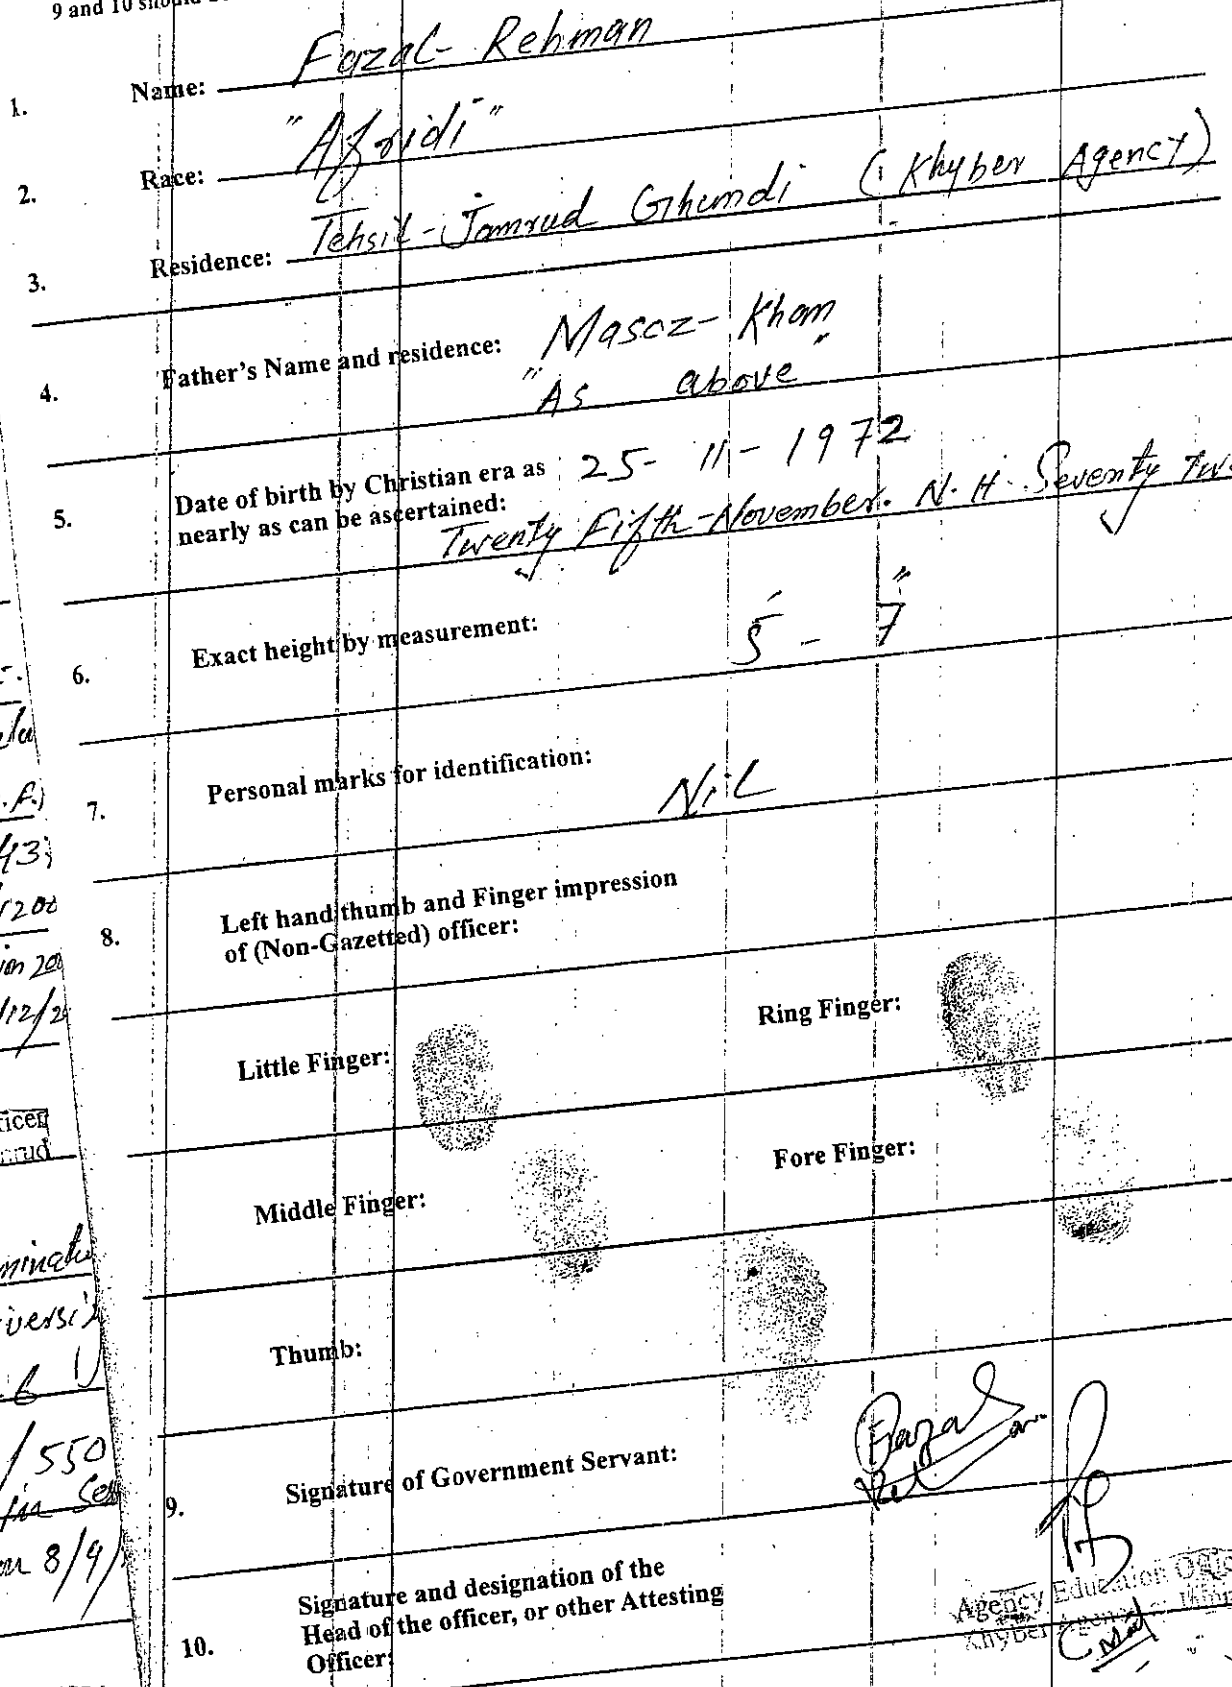 9 and 10 should
1. Name: Fazal-Rehman
2. Race: "Afridi"
3. Residence: Tehsil-Jamrud Ghundi (Khyber Agency)
4. Father's Name and residence: Masoz-Khan
"As above"
5. Date of birth by Christian era as
nearly as can be ascertained: 25-11-1972
Twenty Fifth-November. N.H. Seventy Tw
6. Exact height by measurement: 5'-7"
7. Personal marks for identification: Nil
8. Left hand thumb and Finger impression
of (Non-Gazetted) officer:
Little Finger:
Ring Finger:
Middle Finger:
Fore Finger:
Thumb:
9. Signature of Government Servant: Fazal
10. Signature and designation of the
Head of the officer, or other Attesting
Officer:
Agency Education
Khyber Agency
/550
on 8/9/